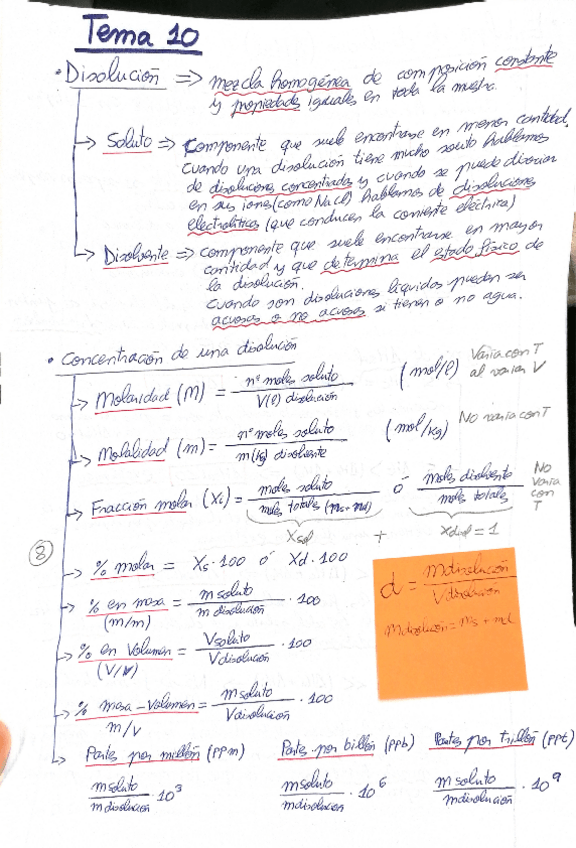 Tema 10
• Disolución => mezcla homogénea de composición constante
y propiedades iguales en toda la muestra.
-> Soluto => Componente que suele encontrarse en menor cantidad,
cuando una disolución tiene mucho soluto hablamos
de disoluciones concentradas y cuando se puede disociar
en sus iones (como NaCl) hablamos de disoluciones
electrolíticas (que conducen la corriente eléctrica)
-> Disolvente => componente que suele encontrarse en mayor
cantidad y que determina el estado físico de
la disolución.
Cuando son disoluciones líquidas pueden ser
acuosas o no acuosas si tienen o no agua.
• Concentración de una disolución
-> Molaridad (M) = nº moles soluto / V(l) disolución (mol/l) Varía con T al variar V
-> Molalidad (m) = nº moles soluto / m(kg) disolvente (mol/kg) No varía con T
-> Fracción molar (Xi) = moles soluto / moles totales (ns+nd) ó moles disolvente / moles totales No varía con T
Xsol + Xdisol = 1
8
-> % molar = Xs · 100 ó Xd · 100
-> % en masa (m/m) = m soluto / m disolución · 100
-> % en Volumen (V/V) = V soluto / V disolución · 100
-> % masa - Volumen m/V = m soluto / V disolución · 100
d = m disolución / V disolución
m disolución = ms + md
-> Partes por millón (ppm) Partes por billón (ppb) Partes por trillón (ppt)
m soluto / m disolución · 10³ m soluto / m disolución · 10⁶ m soluto / m disolución · 10⁹